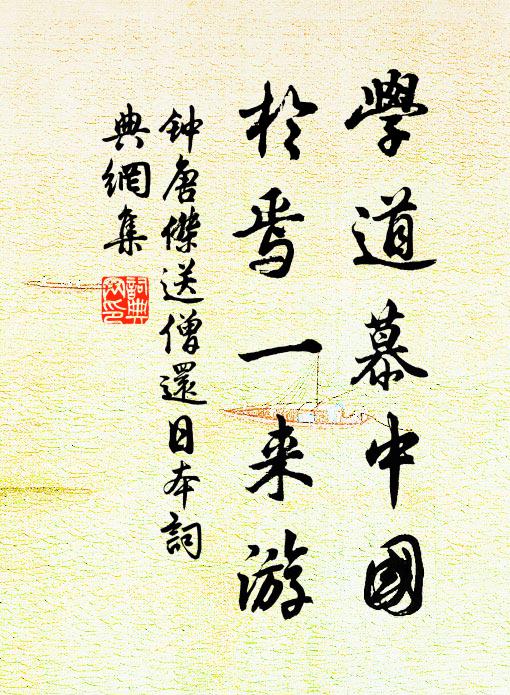 學道慕中國
於焉一来游
钟唐傑送僧還日本詞
典網集
詞典